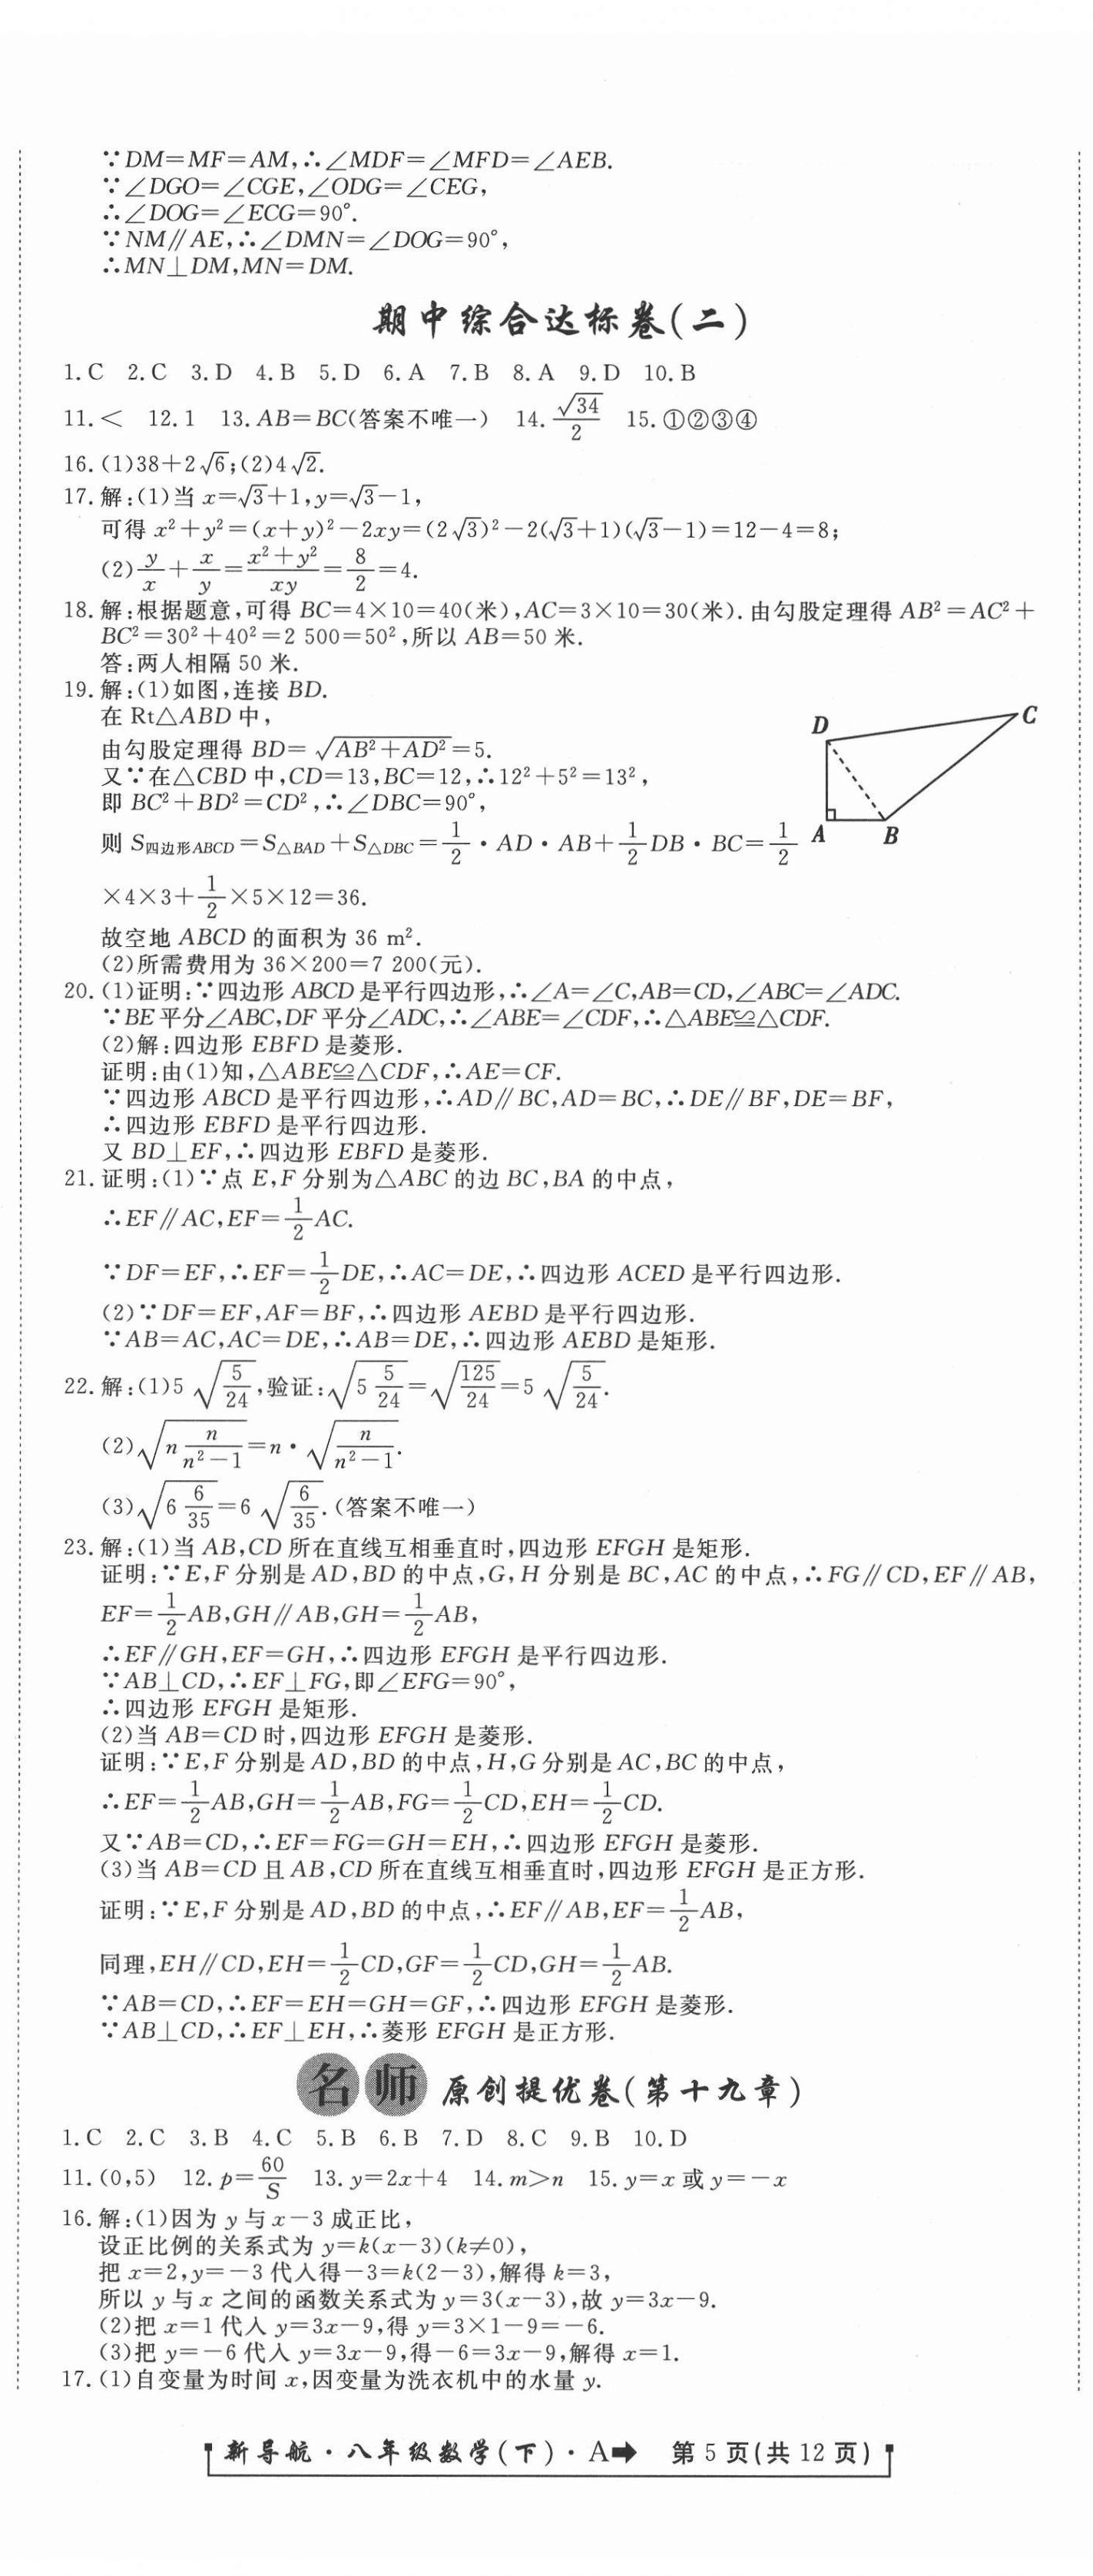 ∵DM=MF=AM,∴∠MDF=∠MFD=∠AEB.
∵∠DGO=∠CGE,∠ODG=∠CEG,
∴∠DOG=∠ECG=90°.
∵NM∥AE,∴∠DMN=∠DOG=90°,
∴MN⊥DM,MN=DM.
期中综合达标卷(二)
1.C 2.C 3.D 4.B 5.D 6.A 7.B 8.A 9.D 10.B
11.< 12.1 13.AB=BC(答案不唯一) 14.√34/2 15.①②③④
16.(1)38+2√6;(2)4√2.
17.解:(1)当 x=√3+1,y=√3-1,
可得 x²+y²=(x+y)²-2xy=(2√3)²-2(√3+1)(√3-1)=12-4=8;
(2)y/x+x/y=(x²+y²)/xy=8/2=4.
18.解:根据题意,可得 BC=4×10=40(米),AC=3×10=30(米).由勾股定理得 AB²=AC²+
BC²=30²+40²=2 500=50²,所以 AB=50 米.
答:两人相隔 50 米.
19.解:(1)如图,连接 BD.
在 Rt△ABD 中,
由勾股定理得 BD=√(AB²+AD²)=5.
又∵在△CBD 中,CD=13,BC=12,∴12²+5²=13²,
即 BC²+BD²=CD²,∴∠DBC=90°,
则 S四边形ABCD=S△BAD+S△DBC=1/2·AD·AB+1/2DB·BC=1/2
×4×3+1/2×5×12=36.
D
C
A
B
故空地 ABCD 的面积为 36 m².
(2)所需费用为 36×200=7 200(元).
20.(1)证明:∵四边形 ABCD 是平行四边形,∴∠A=∠C,AB=CD,∠ABC=∠ADC.
∵BE 平分∠ABC,DF 平分∠ADC,∴∠ABE=∠CDF,∴△ABE≌△CDF.
(2)解:四边形 EBFD 是菱形.
证明:由(1)知,△ABE≌△CDF,∴AE=CF.
∵四边形 ABCD 是平行四边形,∴AD∥BC,AD=BC,∴DE∥BF,DE=BF,
∴四边形 EBFD 是平行四边形.
又 BD⊥EF,∴四边形 EBFD 是菱形.
21.证明:(1)∵点 E,F 分别为△ABC 的边 BC,BA 的中点,
∴EF∥AC,EF=1/2AC.
∵DF=EF,∴EF=1/2DE,∴AC=DE,∴四边形 ACED 是平行四边形.
(2)∵DF=EF,AF=BF,∴四边形 AEBD 是平行四边形.
∵AB=AC,AC=DE,∴AB=DE,∴四边形 AEBD 是矩形.
22.解:(1)5√(5/24),验证:√(5 5/24)=√(125/24)=5√(5/24).
(2)√(n n/(n²-1))=n·√(n/(n²-1)).
(3)√(6 6/35)=6√(6/35).(答案不唯一)
23.解:(1)当 AB,CD 所在直线互相垂直时,四边形 EFGH 是矩形.
证明:∵E,F 分别是 AD,BD 的中点,G,H 分别是 BC,AC 的中点,∴FG∥CD,EF∥AB,
EF=1/2AB,GH∥AB,GH=1/2AB,
∴EF∥GH,EF=GH,∴四边形 EFGH 是平行四边形.
∵AB⊥CD,∴EF⊥FG,即∠EFG=90°,
∴四边形 EFGH 是矩形.
(2)当 AB=CD 时,四边形 EFGH 是菱形.
证明:∵E,F 分别是 AD,BD 的中点,H,G 分别是 AC,BC 的中点,
∴EF=1/2AB,GH=1/2AB,FG=1/2CD,EH=1/2CD.
又∵AB=CD,∴EF=FG=GH=EH,∴四边形 EFGH 是菱形.
(3)当 AB=CD 且 AB,CD 所在直线互相垂直时,四边形 EFGH 是正方形.
证明:∵E,F 分别是 AD,BD 的中点,∴EF∥AB,EF=1/2AB,
同理,EH∥CD,EH=1/2CD,GF=1/2CD,GH=1/2AB.
∵AB=CD,∴EF=EH=GH=GF,∴四边形 EFGH 是菱形.
∵AB⊥CD,∴EF⊥EH,∴菱形 EFGH 是正方形.
名师原创提优卷(第十九章)
1.C 2.C 3.B 4.C 5.B 6.B 7.D 8.C 9.B 10.D
11.(0,5) 12.p=60/S 13.y=2x+4 14.m>n 15.y=x 或 y=-x
16.解:(1)因为 y 与 x-3 成正比,
设正比例的关系式为 y=k(x-3)(k≠0),
把 x=2,y=-3 代入得-3=k(2-3),解得 k=3,
所以 y 与 x 之间的函数关系式为 y=3(x-3),故 y=3x-9.
(2)把 x=1 代入 y=3x-9,得 y=3×1-9=-6.
(3)把 y=-6 代入 y=3x-9,得-6=3x-9,解得 x=1.
17.(1)自变量为时间 x,因变量为洗衣机中的水量 y.
新导航·八年级数学(下)·A➡ 第 5 页(共 12 页)